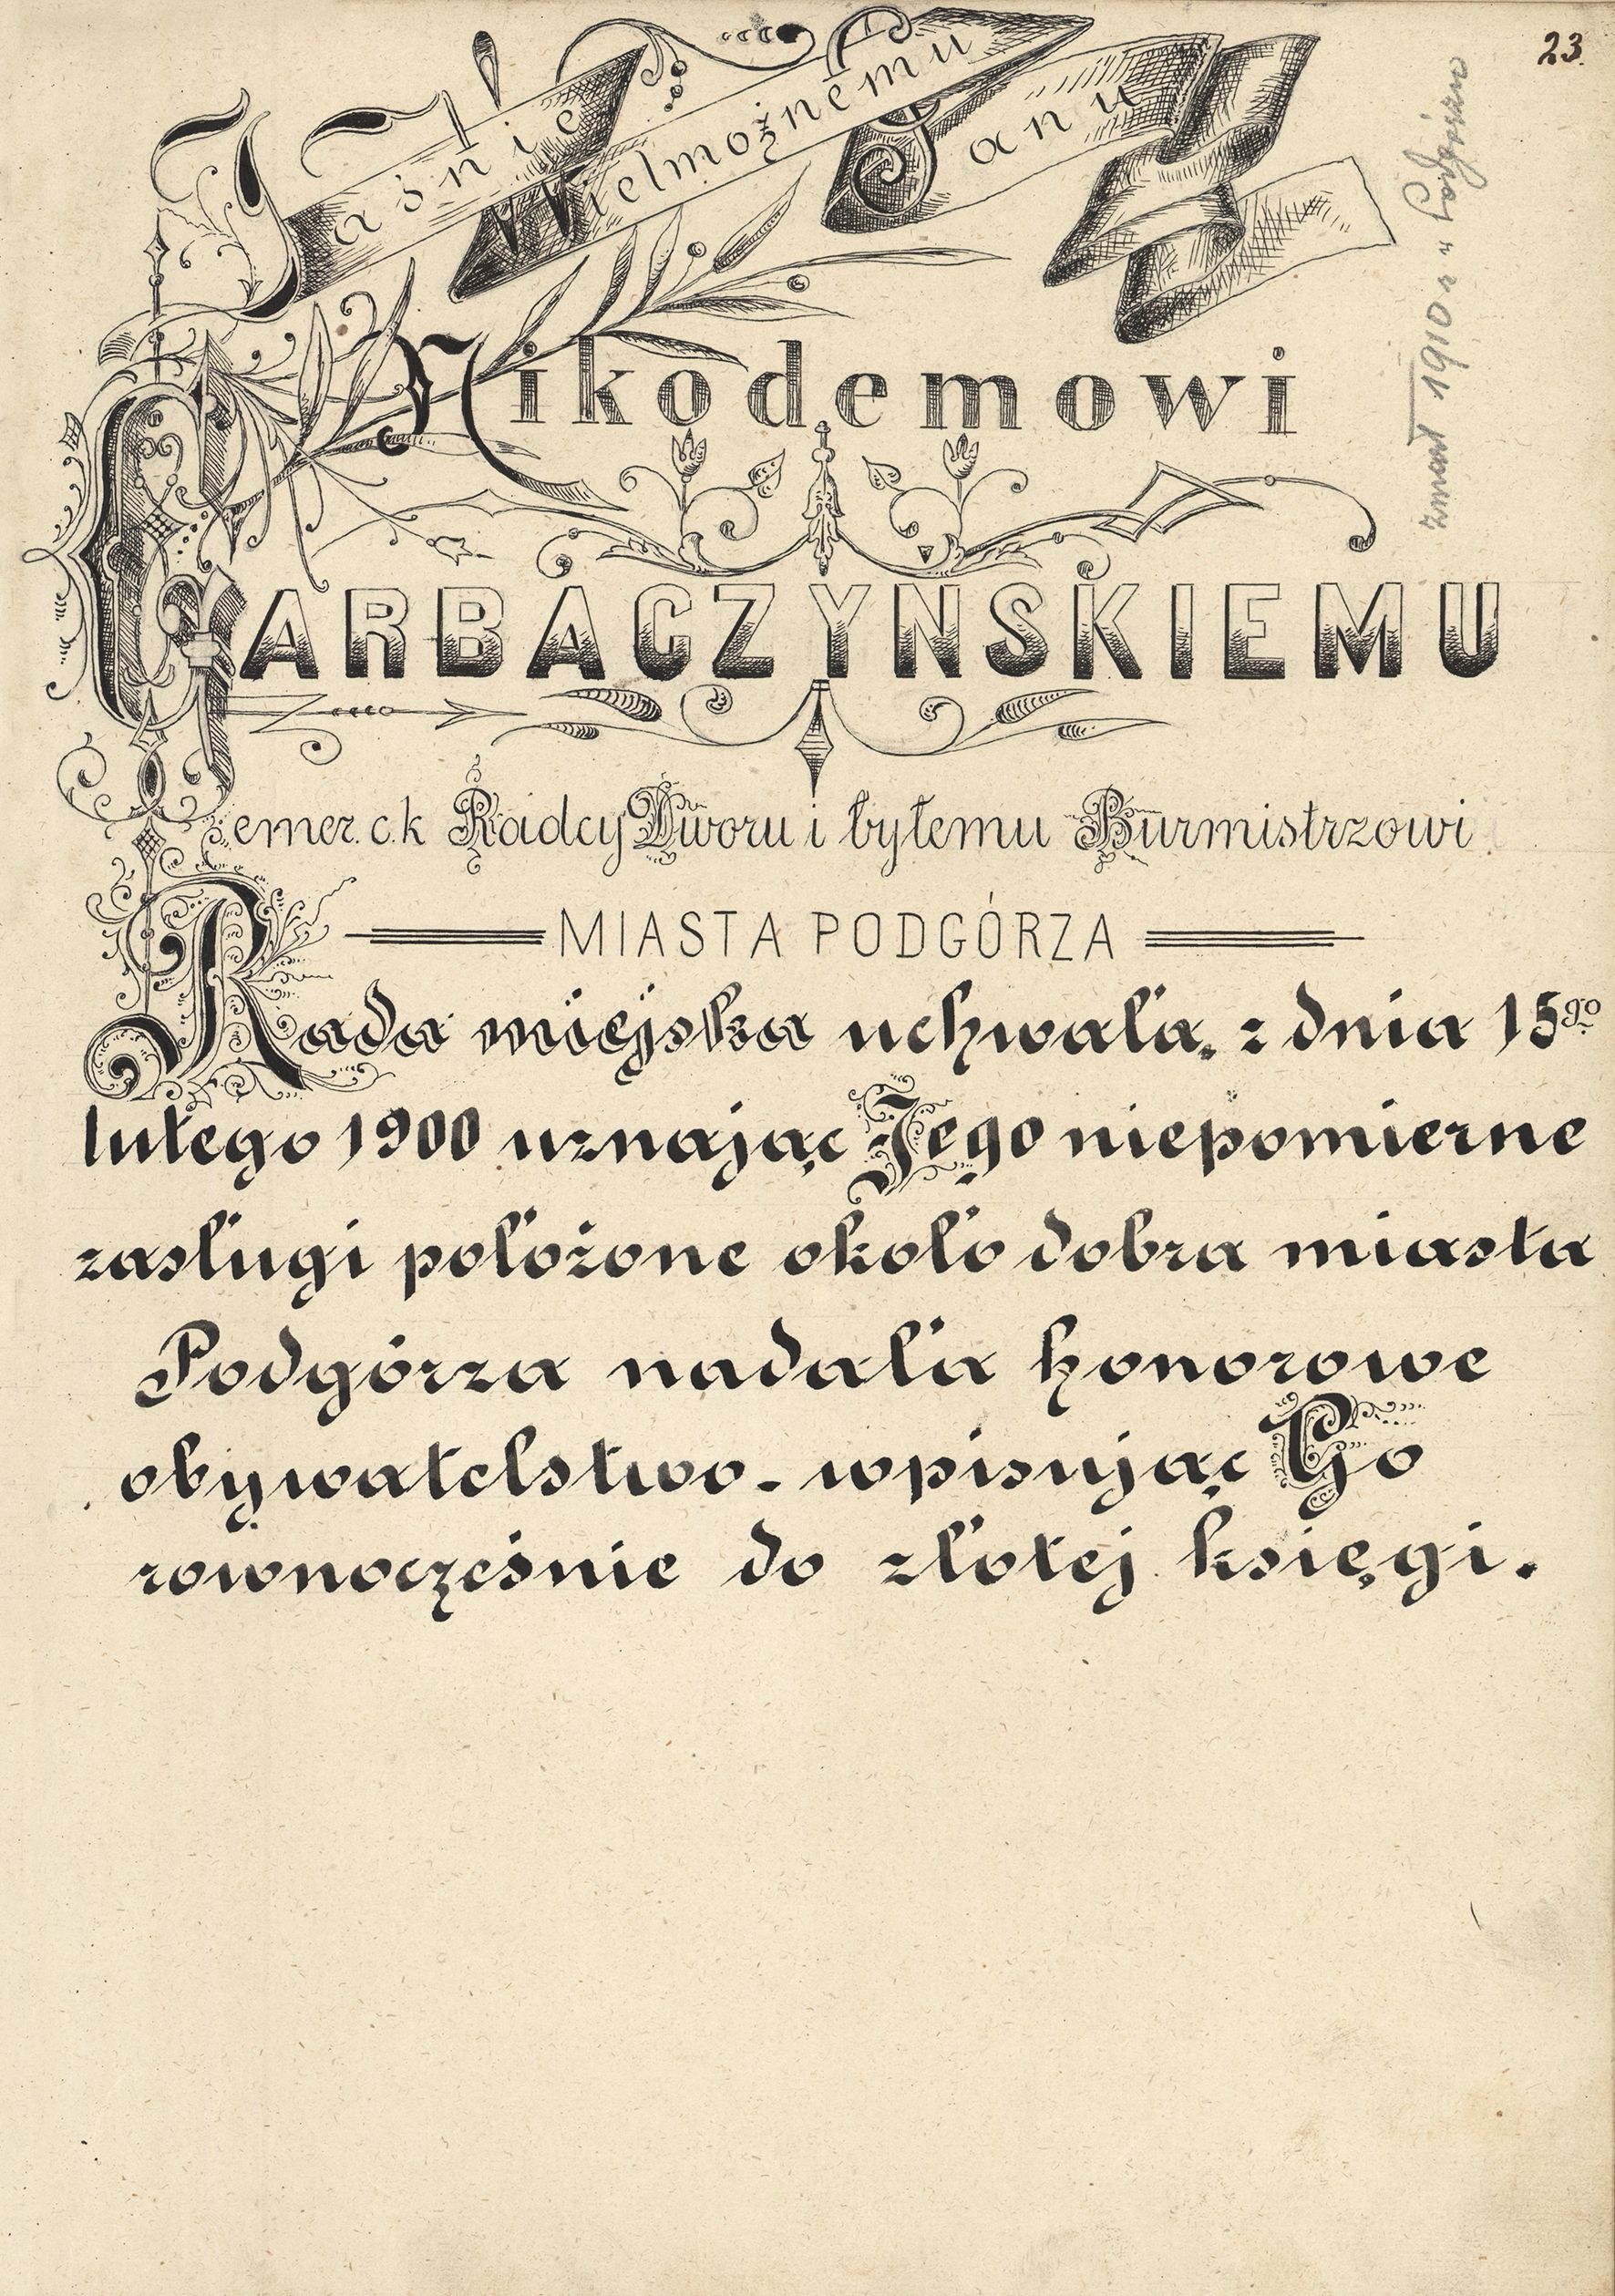 23.
Jaśnie Wielmożnemu Panu
Nikodemowi
GARBACZYNSKIEMU
emer. c.k Radcy Dworu i byłemu Burmistrzowi
MIASTA PODGÓRZA
Rada miejska uchwałą z dnia 15go
lutego 1900 uznając Jego niepomierne
zasługi położone około dobra miasta
Podgórza nadała honorowe
obywatelstwo. wpisując Go
równocześnie do złotej księgi.
zmarł 1910 r w Podgórzu